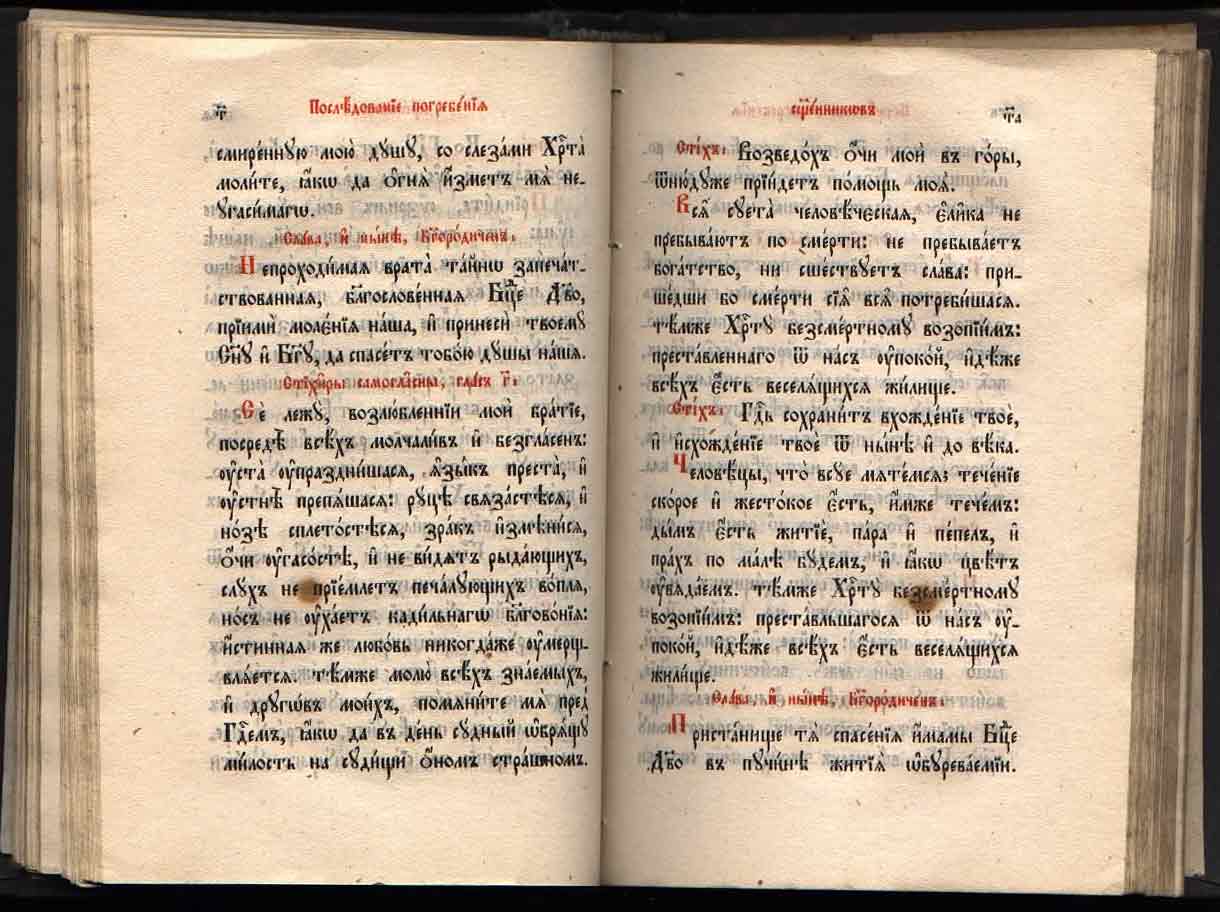 т҃
Послѣ́дованїе погребе́нїѧ
смире́ннꙋю мою̀ дꙋ́шꙋ, со слеза́ми Хрⷭ҇та̀
моли́те, ꙗ҆́кѡ да ѻ҆гнѧ̀ и҆́зметъ мѧ̀ не-
ᲂу҆гаси́магѡ.
Сла́ва, и҆ ны́нѣ, Бг҃оро́диченъ:
Непроходи́маѧ врата̀ та́йнѡ запеча́т-
ствованнаѧ, бл҃гослове́ннаѧ Бц҃е Дв҃о,
прїимѝ моле́нїѧ на̑ша, и҆ принесѝ твоемꙋ̀
Сн҃ꙋ и҆ Бг҃ꙋ, да спасе́тъ тобо́ю дꙋ́шы на́шѧ.
Стїхи̑ры самогла̑сны, гла́съ г҃:
Се́ лежꙋ̀, возлю́бленнїи моѝ бра́тїе,
посредѣ̀ всѣ́хъ молчали́въ и҆ безгла́сенъ:
ᲂу҆ста̀ ᲂу҆праздни́шасѧ, ѧ҆зы́къ преста̀, и҆
ᲂу҆стнѣ̀ препѧ́шасѧ: рꙋ́цѣ свѧза́стѣсѧ, и҆
но́зѣ сплето́стѣсѧ, зра́къ и҆змѣни́сѧ,
ѻ҆́чи ᲂу҆гасо́стѣ, и҆ не ви́дѧтъ рыда́ющихъ,
слꙋ́хъ не прїе́млетъ печа́лꙋющихъ во́плѧ,
но́съ не ᲂу҆ха́етъ кади́льнагѡ бл҃гово́нїѧ:
и҆́стиннаѧ же любо́вь никогда́же ᲂу҆мерщ-
влѧ́етсѧ. тѣ́мже молю̀ всѣ́хъ зна́емыхъ,
и҆ дрꙋгѡ́въ мои́хъ, помѧни́те мѧ̀ пред̾
Гдⷭ҇емъ, ꙗ҆́кѡ да въ де́нь сꙋ́дный ѡ҆брѧ́щꙋ
ми́лость на сꙋди́щи ѻ҆́номъ стра́шномъ.
сщ҃е́нникѡвъ
т҃а
Сті́хъ: Возведо́хъ ѻ҆́чи моѝ въ го́ры,
ѿню́дꙋже прїи́детъ по́мощь моѧ̀.
Всѧ̀ сꙋета̀ человѣ́ческаѧ, є҆ли́ка не
пребыва́ютъ по сме́рти: не пребыва́етъ
бога́тство, ни сше́ствꙋетъ сла́ва: при-
ше́дши бо сме́рти сїѧ̑ всѧ̑ потреби́шасѧ.
тѣ́мже Хрⷭ҇тꙋ̀ безсме́ртномꙋ возопїи́мъ:
преста́вленнаго ѿ на́съ ᲂу҆поко́й, и҆дѣ́же
всѣ́хъ є҆́сть веселѧ́щихсѧ жили́ще.
Сті́хъ: Гдⷭ҇ь сохрани́тъ вхожде́нїе твоѐ,
и҆ и҆схожде́нїе твоѐ ѿ ны́нѣ и҆ до вѣ́ка.
Человѣ́цы, что̀ всꙋ́е мѧте́мсѧ; тече́нїе
ско́рое и҆ жесто́кое є҆́сть, и҆́мже тече́мъ:
ды́мъ є҆́сть житїѐ, па́ра и҆ пе́пелъ, и҆
пра́хъ по ма́лѣ бꙋ́демъ, и҆ ꙗ҆́кѡ цвѣ́тъ
ᲂу҆вѧда́емъ. тѣ́мже Хрⷭ҇тꙋ̀ безсме́ртномꙋ
возопїи́мъ: преста́вльшагосѧ ѿ на́съ ᲂу҆-
поко́й, и҆дѣ́же всѣ́хъ є҆́сть веселѧ́щихсѧ
жили́ще.
Сла́ва, и҆ ны́нѣ, Бг҃оро́диченъ:
Приста́нище тѧ̀ спасе́нїѧ и҆́мамы Бц҃е
Дв҃о въ пꙋчи́нѣ житїѧ̀ ѡ҆бꙋрева́емїи.